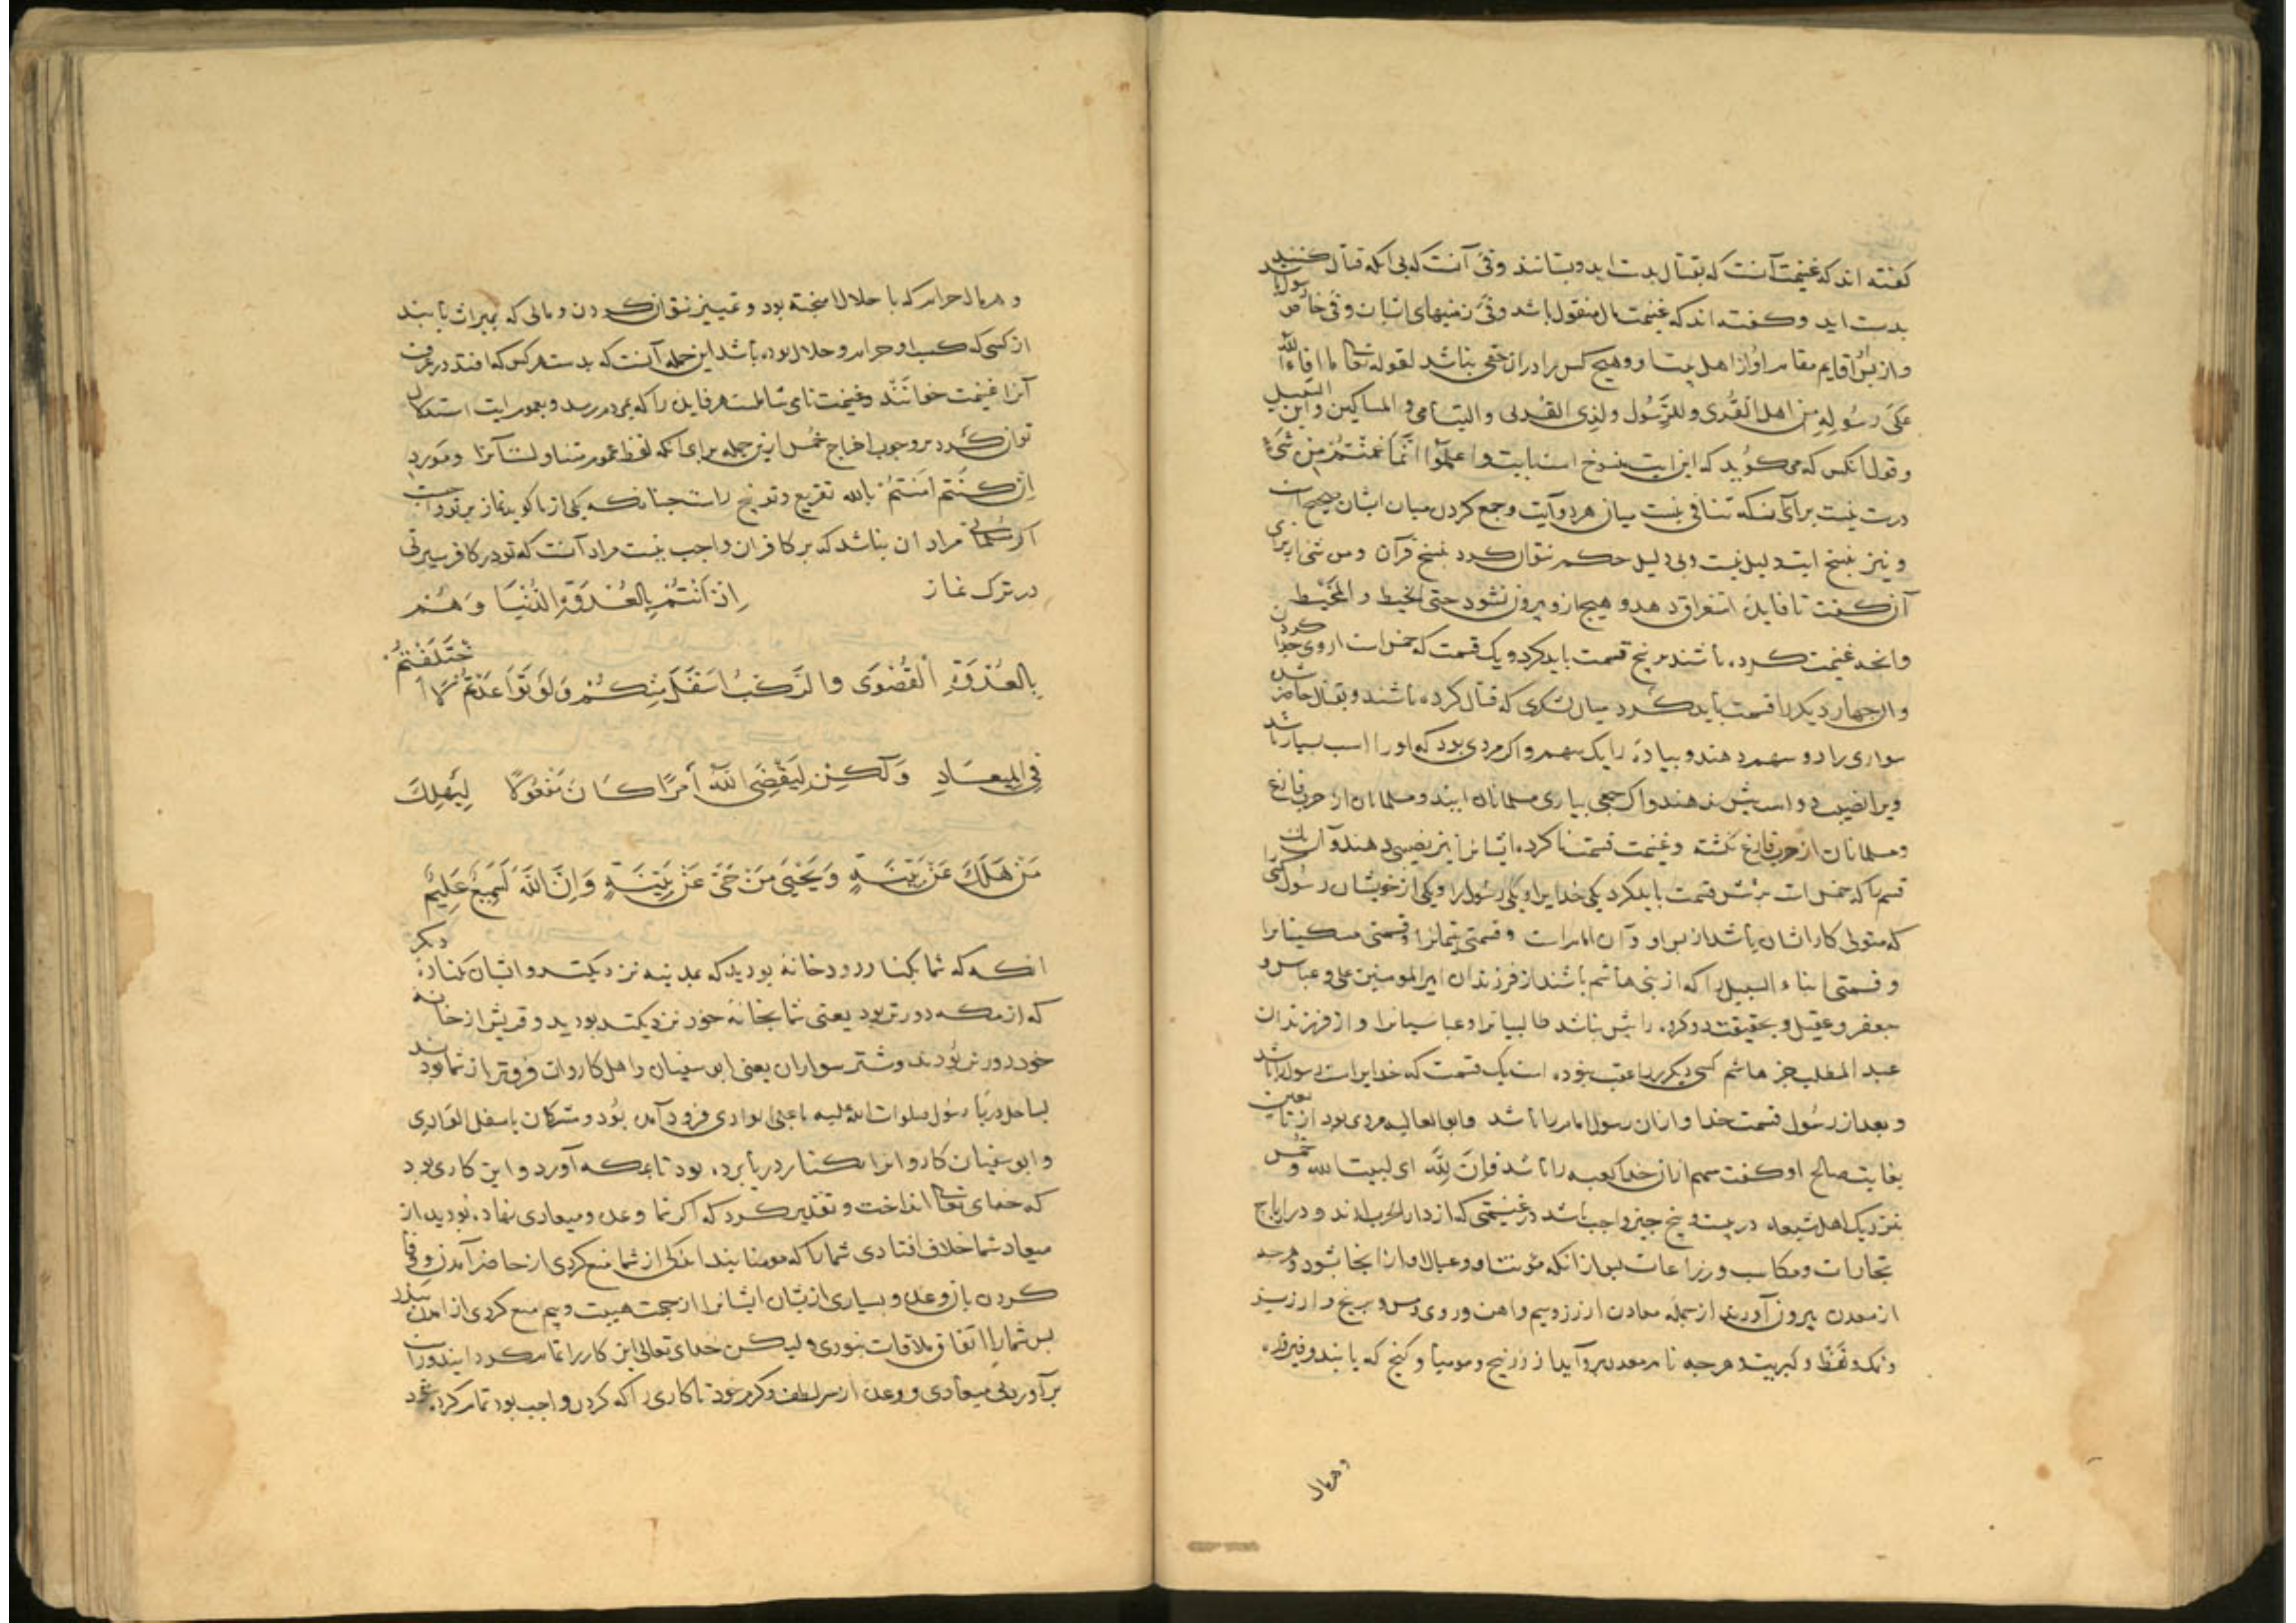 کفته اند که غنیمت آنست که بقتال بدست اید و بستانند و فئ آنست که بی آنکه قتال کنند
بدست اید و کفته اند که غنیمت مال منقول باشد و فئ زمینهای ایشان و فئ خاص رسول باشد
و از پس او قایم مقام او از اهل بیت او و هیچ کس را در ان حقی نباشد لقوله تعالی ما افاء الله
عَلَی رَسُولِهِ مِن اهل القُرَی وللرَّسُول ولذی القُربی والیتامی والمساکین وابن السبیل
و قول انکس که می کوید که این ایت منسوخ است بایت واعلموآ انَّما غَنمْتُمْ مِن شَیء
درست نیست برای آنکه تنافی نیست میان هر دو آیت و جمع کردن میان ایشان صحیح است
و نیز بنسخ ایت دلیل نیست و بی دلیل حکم نتوان کرد بنسخ قرآن و من شئ از برای
آن کفت تا فایدهٔ استغراق دهد و هیچ از و بیرون نشود حتی الخیط و المخیط
و انچه غنیمت کرده باشند بر پنج قسمت باید کرد و یک قسمت که خمس است از وی جدا کردن
و ان چهار دیکر را قسمت باید کرد میان لشکری که قتال کرده باشند و بقتال حاضر شده
سواری را دو سهم دهند و پیاده را یک سهم و اکر مردی بود که او را اسب بسیار باشد
ویرا نصیب دو اسب بیش ندهند و اکر جمعی بیاری مسلمانان ایند و مسلمانان از حرب فارغ
و مسلمانان از حرب فارغ کشته و غنیمت قسمت ناکرده ایشانرا نیز نصیبی دهند و آن یک
قسم را که خمس است بر شش قسمت باید کرد یکی خدایرا و یکی رسول را و یکی از خویشان رسول کسی را
که متولی کار ایشان باشد از پس او و آن امام است و قسمتی یتیمانرا و قسمتی مسکینانرا
و قسمتی ابناء السبیل را که از بنی هاشم باشند از فرزندان امیر المومنین علی و عباس و
جعفر و عقیل و بحقیقت دو کروه را بیش نباشد طالبیانرا و عباسیانرا و از فرزندان
عبد المطلب جز هاشم کسی دیکر را عقب نبوده است یک قسمت که خدایراست رسول را باشد
و بعد از رسول قسمت خدا و ازان رسول امام را باشد و ابو العالیه مردی بود از تابعین
بغایت صالح او کفت سهم ازان خدا کعبه را باشد فاِنَّ لِلّه ای لبیت الله و خُمس
بنزدیک اهل شیعه در بیست و پنج چیز واجب باشد در غنیمتی که از دار الحرب ارند و در ارباح
تجارات و مکاسب و زراعات پس ازانکه مؤنت او و عیال او ازانجا بشود و هرچه
از معدن بیرون آورند از جمله معادن از زر و سیم و اهن و روی و مس و برنج و ارزیز
و نمک و نفط و کبریت و هرچه نام معدن بر و آید از زرنیخ و مومیا و کنج که یابند و فیروزه
و هر مال
و هر مال حرام که با حلال امیخته بود و تمییز نتوان کردن و مالی که بمیراث یابند
از کسی که کسب او حرام و حلال بوده باشد این جمله آنست که بدست هر کس که افتد در عرف
آنرا غنیمت خوانَند و غنیمت نامی شاملست هر فایده را که بمردم رسد و بعموم ایت استدلال
توان کرد بر وجوب اخراج خُمس ازین جمله برای آنکه لفظ عموم متناولست آنرا و مَورد
اِنْ کُنتم امَنتمْ بالله تقریع و توبیخ راست چنانکه یکی از ما کوید نماز بر تو واجبست
اکر مسلمانی مراد ان نباشد که بر کافران واجب نیست مراد آنست که تو در کافر سیرتی
در ترک نماز اِذ اَنتُمْ بِالعُدوَةِ الدُّنیَا وَهُم
بِالعُدوَةِ القُصْوَی والرَّکبُ اَسْفَلَ مِنکُمْ وَلَو تَوَاعَدْتُمْ لَاخْتَلَفْتُمْ
فِی المِیعَادِ وَلٰکِنْ لِیَقْضِیَ اللّهُ اَمْرًا کَانَ مَفْعُولًا لِیَهْلِکَ
مَنْ هَلَکَ عَنْ بَیِّنَةٍ وَیَحْیَی مَنْ حَیَّ عَنْ بَیِّنَةٍ وَاِنَّ اللّهَ لَسَمِیعٌ عَلِیمٌ
انکه که شما بکنار رودخانه بودید که بمدینه نزدیکتر و ایشان بکنارهٔ دیکر
که از مکه دورتر بود یعنی شما بخانهٔ خود نزدیکتر بودید و قریش از خانه
خود دورتر بُودند و شتر سواران یعنی ابو سفیان و اهل کاروان فروتر از شما بودند
بساحل دریا رسول صلوات الله علیه باعلی الوادی فرود آمده بُود و مشرکان باسفل الوَادِی
و ابو سفیان کاروانرا بکنار دریا برده بود تا بمکه آورد و این کاری بود
که خدای تعالی انداخت و تقدیر کرد که اکر شما وعده و میعادی نهاده بُودید از
میعاد شما خلاف افتادی شما را که مومنانید اندکی از شما منع کردی از حاضر آمدن و وفا
کردن بان وعده و بسیاری ازیشان ایشانرا از جهت هیبت و بیم منع کردی از امدن ببدر
پس شما را اتفاق ملاقات نبودی و لیکن خُدای تعالی این کار را تمام کرد
بر آورد بی میعادی و وعده از سر لطف و کرم خود تا کاری را که کردن واجب بود تمام کرده شود